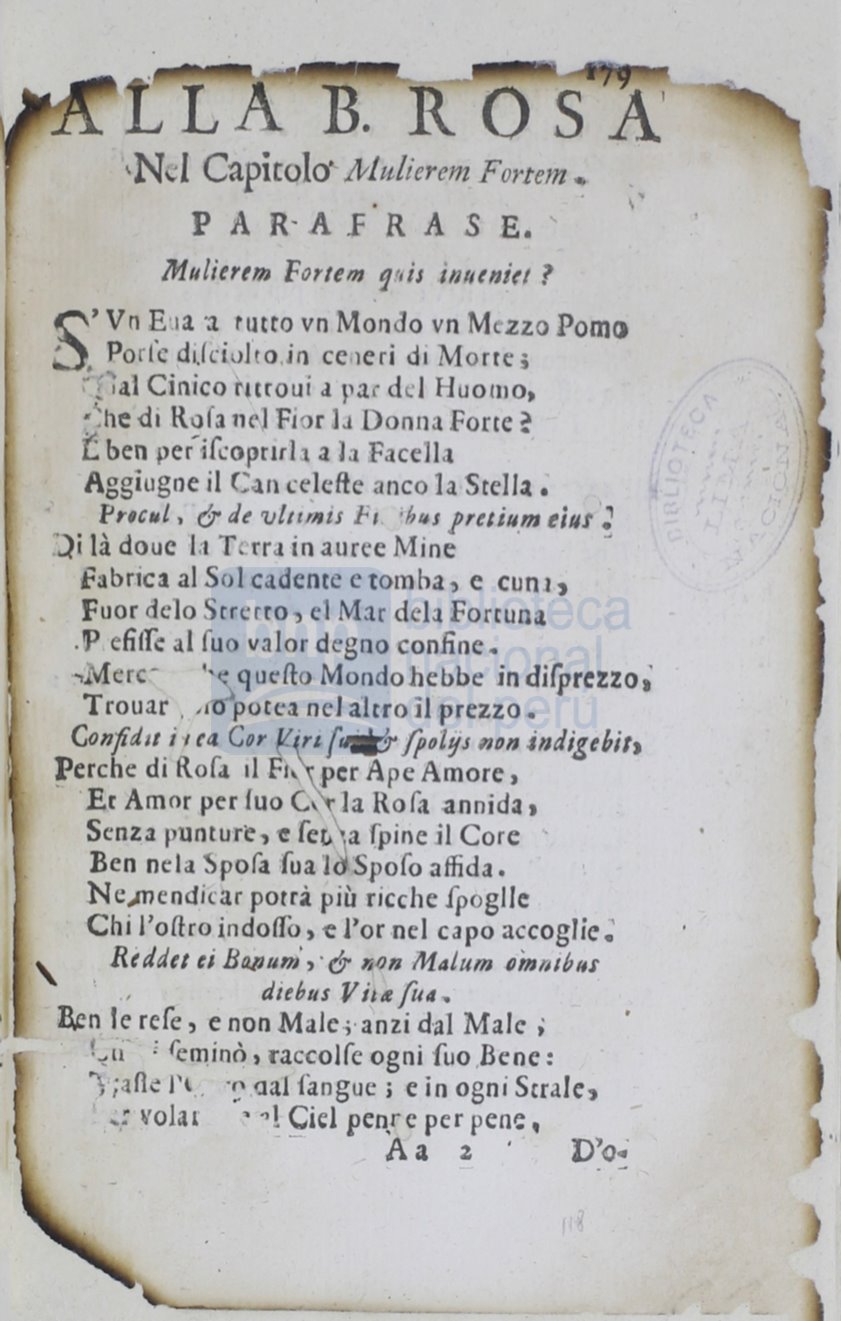 179
ALLA B. ROSA
Nel Capitolo Mulierem Fortem.
PARAFRASE.
Mulierem Fortem quis inueniet?
S'Vn Eua a tutto vn Mondo vn Mezzo Pomo
Porſe diſciolto in ceneri di Morte;
Cinico ritroui a par del Huomo,
Che di Roſa nel Fior la Donna Forte?
E ben per iſcoprirla a la Facella
Aggiugne il Can celeſte anco la Stella.
Procul, & de vltimis pretium eius?
Di là doue la Terra in auree Mine
Fabrica al Sol cadente e tomba, e cuna,
Fuor delo Stretto, el Mar dela Fortuna
P efiſſe al ſuo valor degno confine.
queſto Mondo hebbe in diſprezzo,
Trouar potea nel altro il prezzo.
Confidit in ea Cor Viri & ſpolijs non indigebit,
Perche di Roſa il Fior per Ape Amore,
Et Amor per ſuo Cor la Roſa annida,
Senza punture, e ſenza ſpine il Core
Ben nela Spoſa ſua lo Spoſo affida.
Ne mendicar potrà più ricche ſpoglie
Chi l'oſtro indoſſo, e l'or nel capo accoglie.
Reddet ei Bonum, & non Malum omnibus
diebus Vitæ ſuæ.
Ben le reſe, e non Male; anzi dal Male;
ſeminò, raccolſe ogni ſuo Bene:
dal ſangue; e in ogni Strale,
volar Ciel penne per pene,
Aa 2 D'o-
118
BIBLIOTECA
LIMA
NACIONAL
biblioteca
nacional
del perú